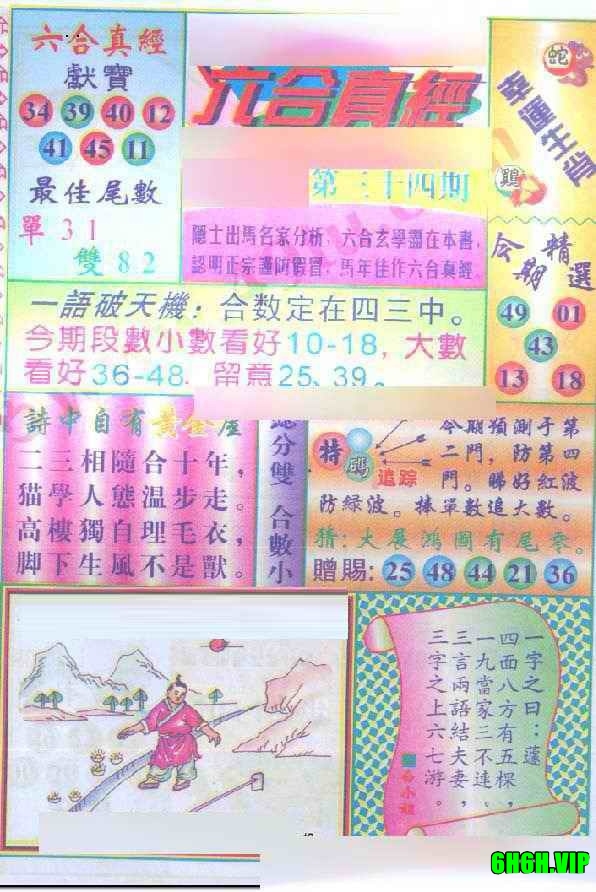 六合真經
獻寶
34 39 40 12
41 45 11
最佳尾數
單31
雙82
六合真經
第三十四期
隱士出馬名家分析，六合玄學溜在本書，
認明正宗謹防假冒，馬年佳作六合真經。
蛇
幸運生肖
鷄
今期精選
49 01
43
13 18
一語破天機：合数定在四三中。
今期段數小數看好10-18，大數
看好36-48．留意25、39。
詩中自有黃金屋
二三相隨合十年，
猫學人態温步走。
高樓獨自理毛衣，
脚下生風不是獸。
總分雙 合數小
特碼
追踪
今期須測于第
二門，防第四
門。睇好紅波
防緑波。捧單數追大數。
猜：大展鴻圖有尾零。
贈賜：25 48 44 21 36
一字之曰：蓬
四面八方有五棵，
一九當家三不達。
三言兩語結夫妻，
三字之上六七游。
6H6H.VIP